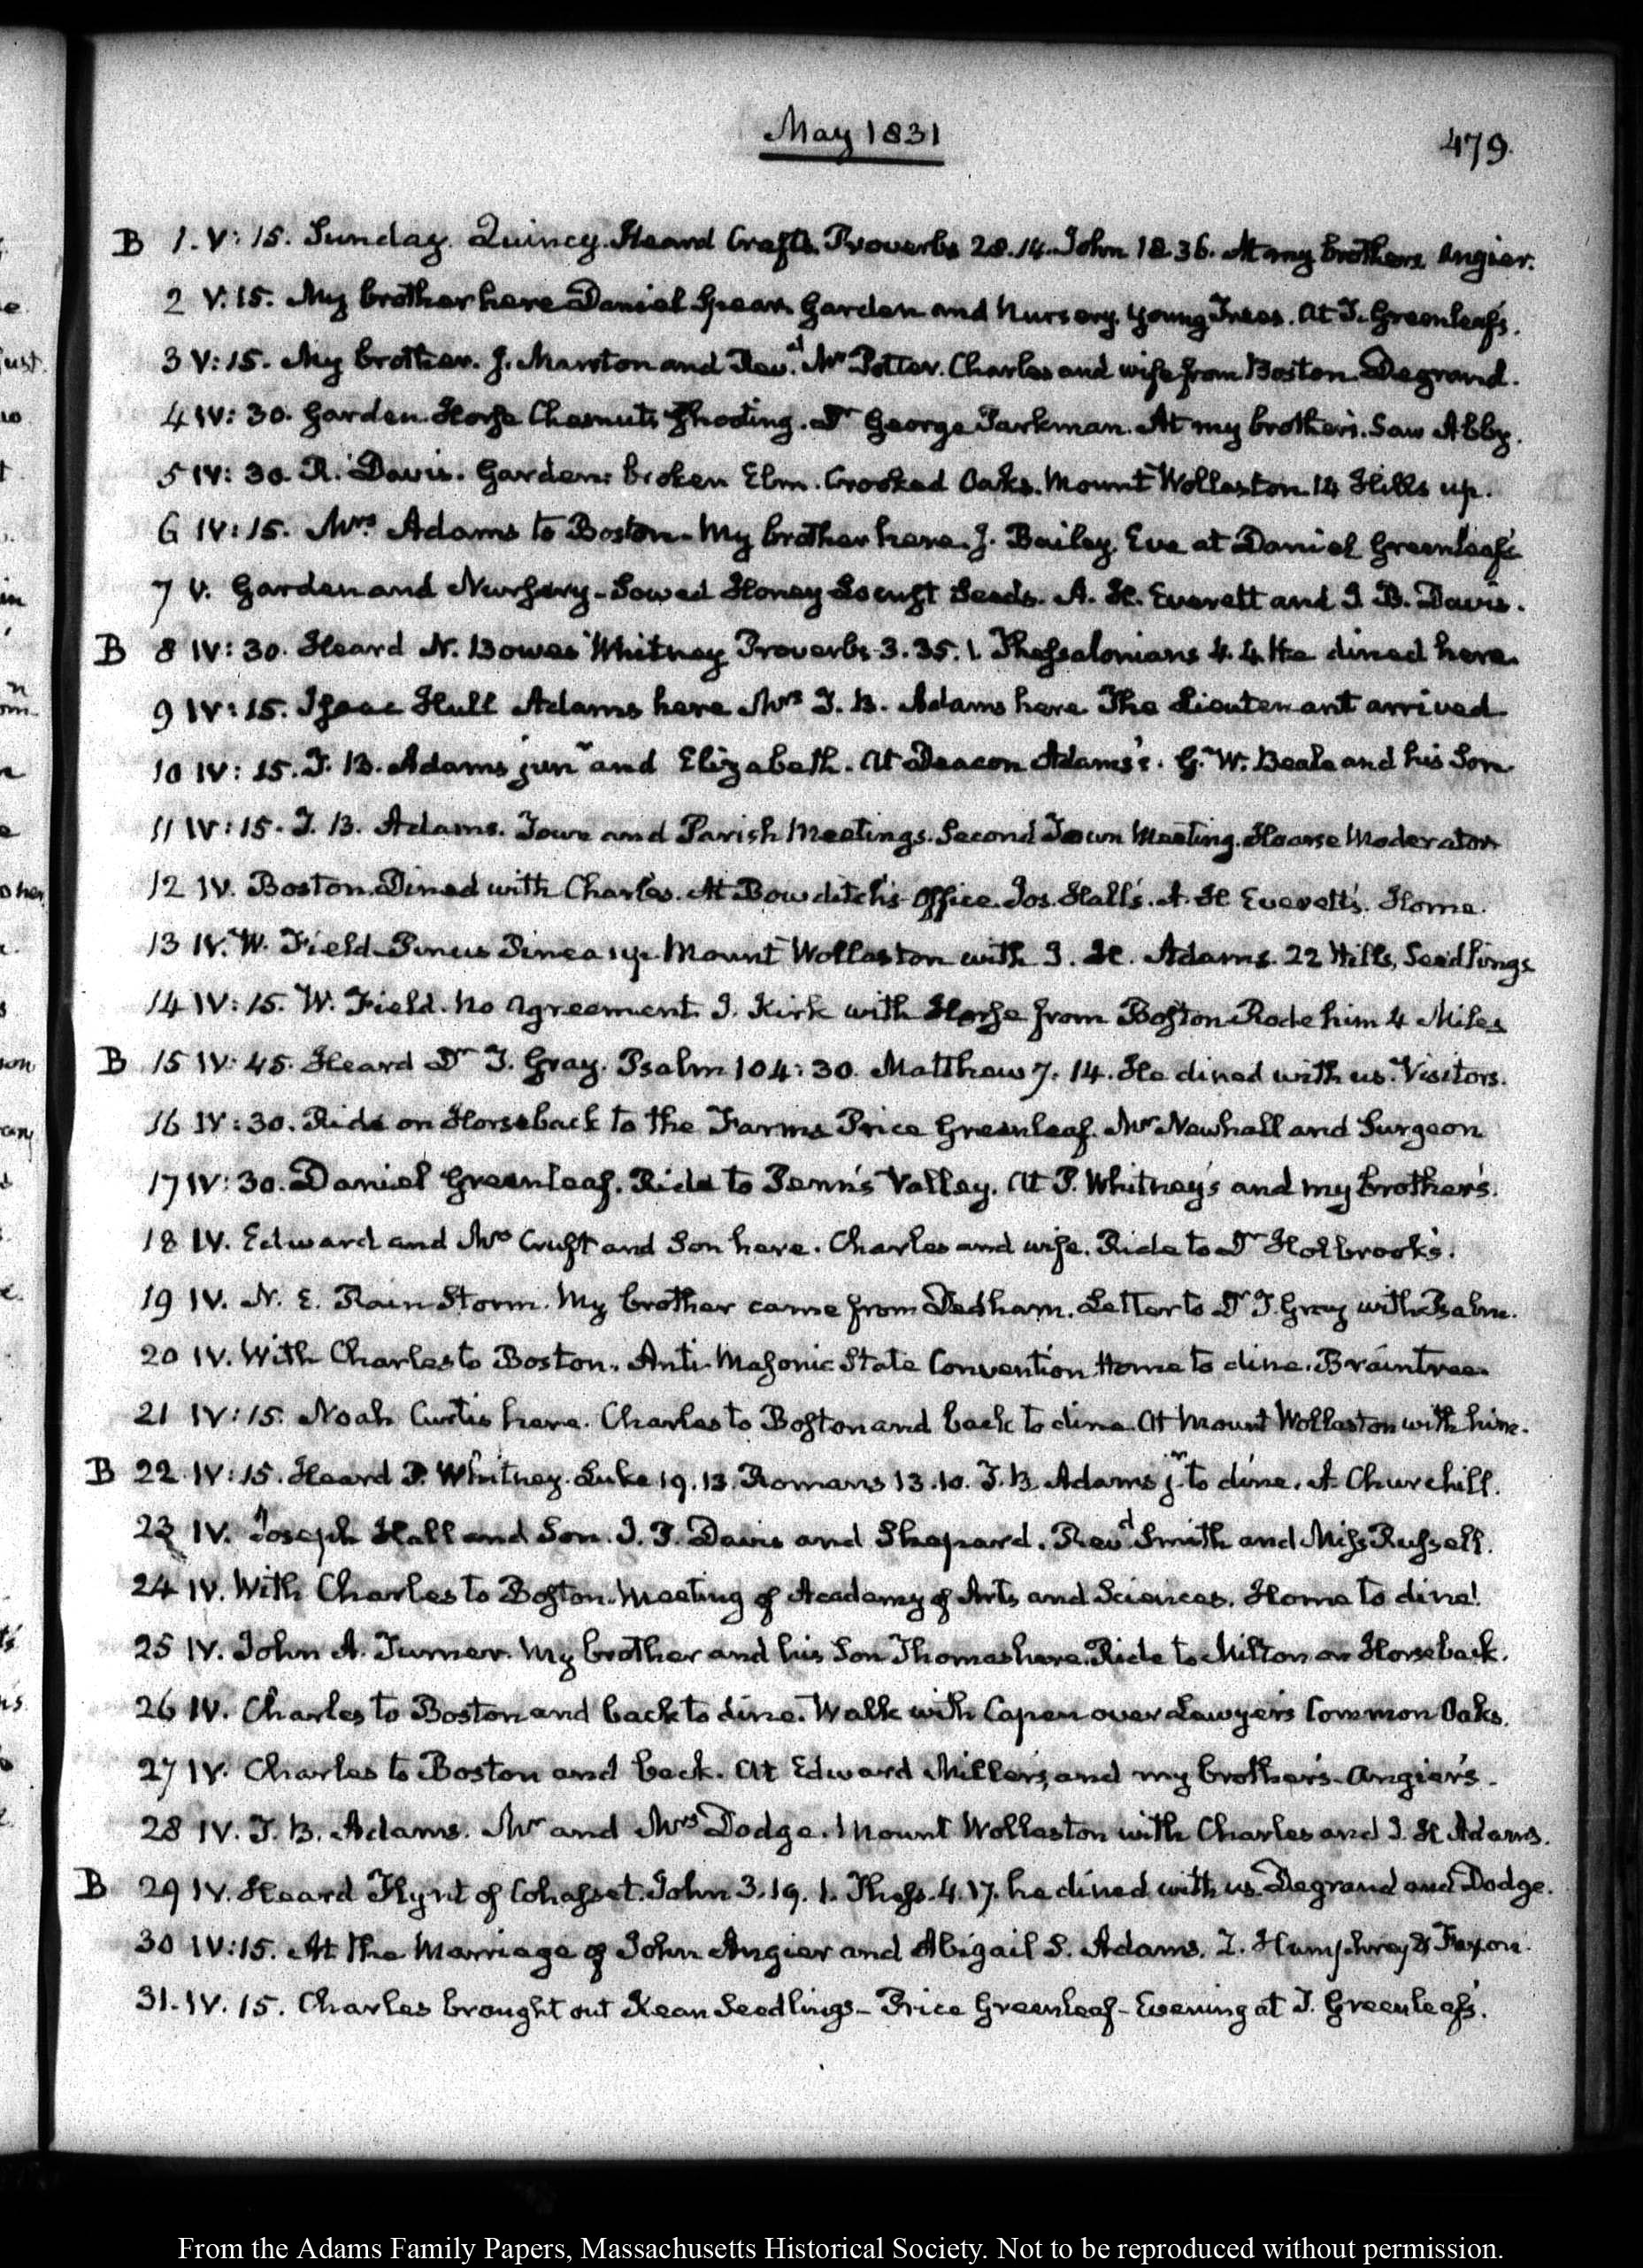 May 1831
479.
B 1. V: 15. Sunday. Quincy. Heard Crafts. Proverbs 28.14. John 18.36. At my brothers. Angier.
2 V: 15. My brother here Daniel Spear. Garden and Nursery. Young Trees. At T. Greenleaf's.
3 V: 15. My brother. J. Marston and Revd. Mr Potter. Charles and wife from Boston. Degrand.
4 IV: 30. Garden. Horse Chesnuts shooting. Dr George Parkman. At my brother's. Saw Abby.
5 IV: 30. R. Davis. Garden: broken Elm. Crooked Oaks. Mount Wollaston 14 Hills up.
6 IV: 15. Mrs Adams to Boston. My brother here. J. Bailey. Eve at Daniel Greenleaf's
7 V. Garden and Nursery. Sowed Honey Locust Seeds. A. H. Everett and I. B. Davis.
B 8 IV: 30. Heard N. Bowes Whitney Proverbs 3.35. 1. Thessalonians 4.4. He dined here.
9 IV: 15. Isaac Hull Adams here Mrs T. B. Adams here. The Lieutenant arrived
10 IV: 15. T. B. Adams junr and Elizabeth. At Deacon Adams's. G. W. Beale and his Son.
11 IV: 15. T. B. Adams. Town and Parish Meetings. Second Town Meeting. Hoarse Moderator
12 IV. Boston. Dined with Charles. At Bowditch's office. Jos. Hall's. A. H Everett's. Home.
13 IV. W. Field. Pinus Pinea up. Mount Wollaston with I. H. Adams. 22 Hills, Seedlings
14 IV: 15. W. Field. No agreement. J. Kirk with Horse from Boston Rode him 4 Miles
B 15 IV: 45. Heard Dr T. Gray. Psalm 104: 30. Matthew 7. 14. He dined with us. Visitors.
16 IV: 30. Ride on Horseback to the Farms Price Greenleaf. Mr Newhall and Surgeon
17 IV: 30. Daniel Greenleaf. Ride to Penn's Valley. At P. Whitney's and my brother's.
18 IV. Edward and Mrs Cruft and Son here. Charles and wife. Ride to Dr Holbrook's.
19 IV. N. E. Rain Storm. My brother came from Dedham. Letter to Dr T. Gray with Psalm.
20 IV. With Charles to Boston. Anti-Masonic State Convention. Home to dine. Braintree.
21 IV: 15. Noah Curtis here. Charles to Boston and back to dine. At Mount Wollaston with him.
B 22. IV: 15. Heard P. Whitney. Luke 19. 13. Romans 13.10. T. B. Adams jr to dine. A. Churchill.
23 IV. Joseph Hall and Son. I. P. Davis and Shepard. Revd Smith and Miss Russell.
24 IV. With Charles to Boston. Meeting of Academy of Arts and Sciences. Home to dine.
25 IV. John A. Turner. My brother and his Son Thomas here. Ride to Milton on Horseback.
26 IV. Charles to Boston and back to dine. Walk with Capen over Lawyer's Common Oaks.
27 IV. Charles to Boston and back. At Edward Miller's, and my brother's. Angier's.
28 IV. T. B. Adams. Mr and Mrs Dodge. Mount Wollaston with Charles and I. H Adams.
B 29 IV. Heard Flynt of Cohasset. John 3.19. 1. Thess. 4.17. he dined with us. Degrand and Dodge.
30 IV: 15. At the Marriage of John Angier and Abigail S. Adams. Humphrey & Faxon.
31. IV. 15. Charles brought out Kean Seedlings - Price Greenleaf - Evening at T. Greenleaf's.
From the Adams Family Papers, Massachusetts Historical Society. Not to be reproduced without permission.